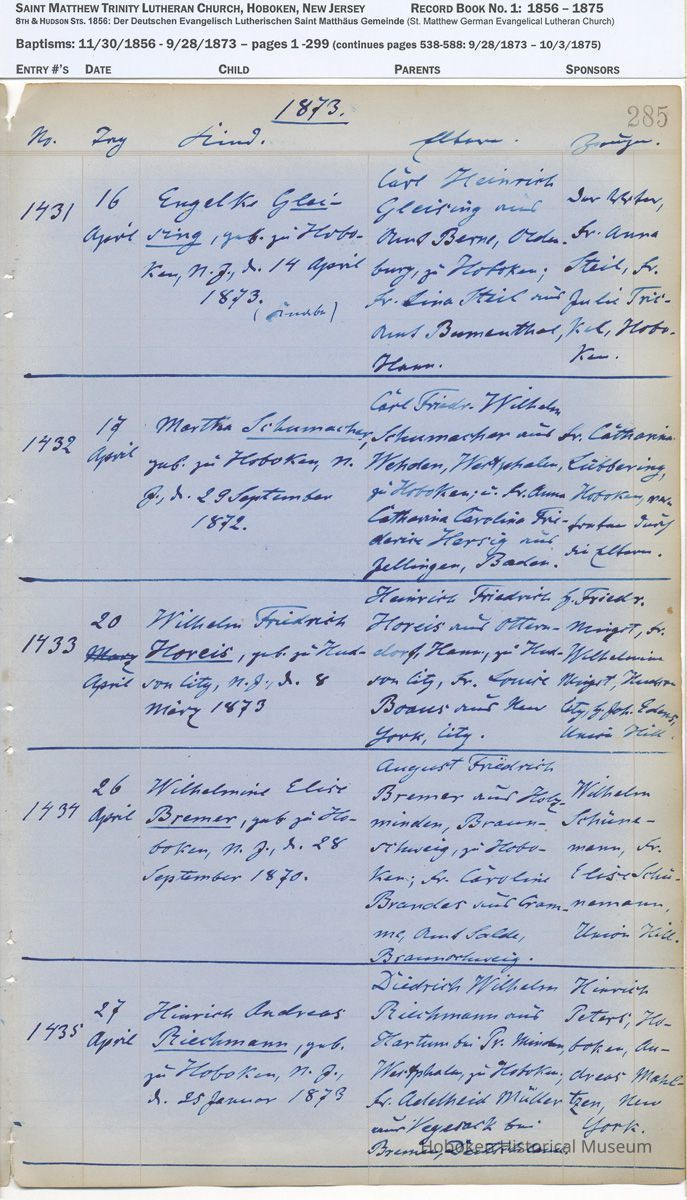 SAINT MATTHEW TRINITY LUTHERAN CHURCH, HOBOKEN, NEW JERSEY RECORD BOOK NO. 1: 1856 – 1875
8TH & HUDSON STS. 1856: Der Deutschen Evangelisch Lutherischen Saint Matthäus Gemeinde (St. Matthew German Evangelical Lutheran Church)
Baptisms: 11/30/1856 - 9/28/1873 – pages 1 -299 (continues pages 538-588: 9/28/1873 – 10/3/1875)
ENTRY #'S DATE CHILD PARENTS SPONSORS
1873. 285
No. Tag Kind. Eltern. Zeugen.
1431
16
April
Engelke Glei-
sing, geb. zu Hobo-
ken, N. J., d. 14 April
1873.
(Knabe)
Carl Heinrich
Gleising aus
Amt Berne, Olden-
burg, zu Hoboken;
Fr. Lina Steil aus
Amt Blumenthal,
Hann.
Der Vater,
Fr. Anna
Steil, Fr.
Julie Tris-
kel, Hobo-
ken.
1432
17
April
Martha Schumacher,
geb. zu Hoboken, N.
J., d. 29 September
1872.
Carl Friedr. Wilhelm
Schumacher aus
Wehden, Westphalen,
zu Hoboken; u. Fr. Anna
Catharina Carolina Frie-
derike Hersig aus
Zellingen, Baden.
Fr. Catharina
Lübbering,
Hoboken, ver-
treten durch
die Eltern.
1433
20
März
April
Wilhelm Friedrich
Horeis, geb. zu Hud-
son City, N. J., d. 8
März 1873
Heinrich Friedrich
Horeis aus Ottern-
dorf, Hann., zu Hud-
son City, Fr. Louise
Boaus aus New
York, City.
H. Friedr.
Mügst, Fr.
Wilhelmine
Mügst, Hudson
City, H. Joh. Edens,
Union Hill.
1434
26
April
Wilhelmine Elise
Bremer, geb. zu Ho-
boken, N. J., d. 28
September 1870.
August Friedrich
Bremer aus Holz-
minden, Braun-
schweig, zu Hobo-
ken; Fr. Caroline
Brandes aus Cram-
me, Amt Salde,
Braunschweig.
Wilhelm
Schüne-
mann, Fr.
Elise Schü-
nemann,
Union Hill.
1435
27
April
Hinrich Andreas
Riechmann, geb.
zu Hoboken, N. J.,
d. 25 Januar 1873
Diedrich Wilhelm
Riechmann aus
Hartum bei Pr. Minden
Westphalen, zu Hoboken;
Fr. Adelheid Müller
aus Vegesack bei
Bremen,
Hinrich
Peters, Ho-
boken, An-
dreas Mahl-
tzen, New
York.
Hoboken Historical Museum